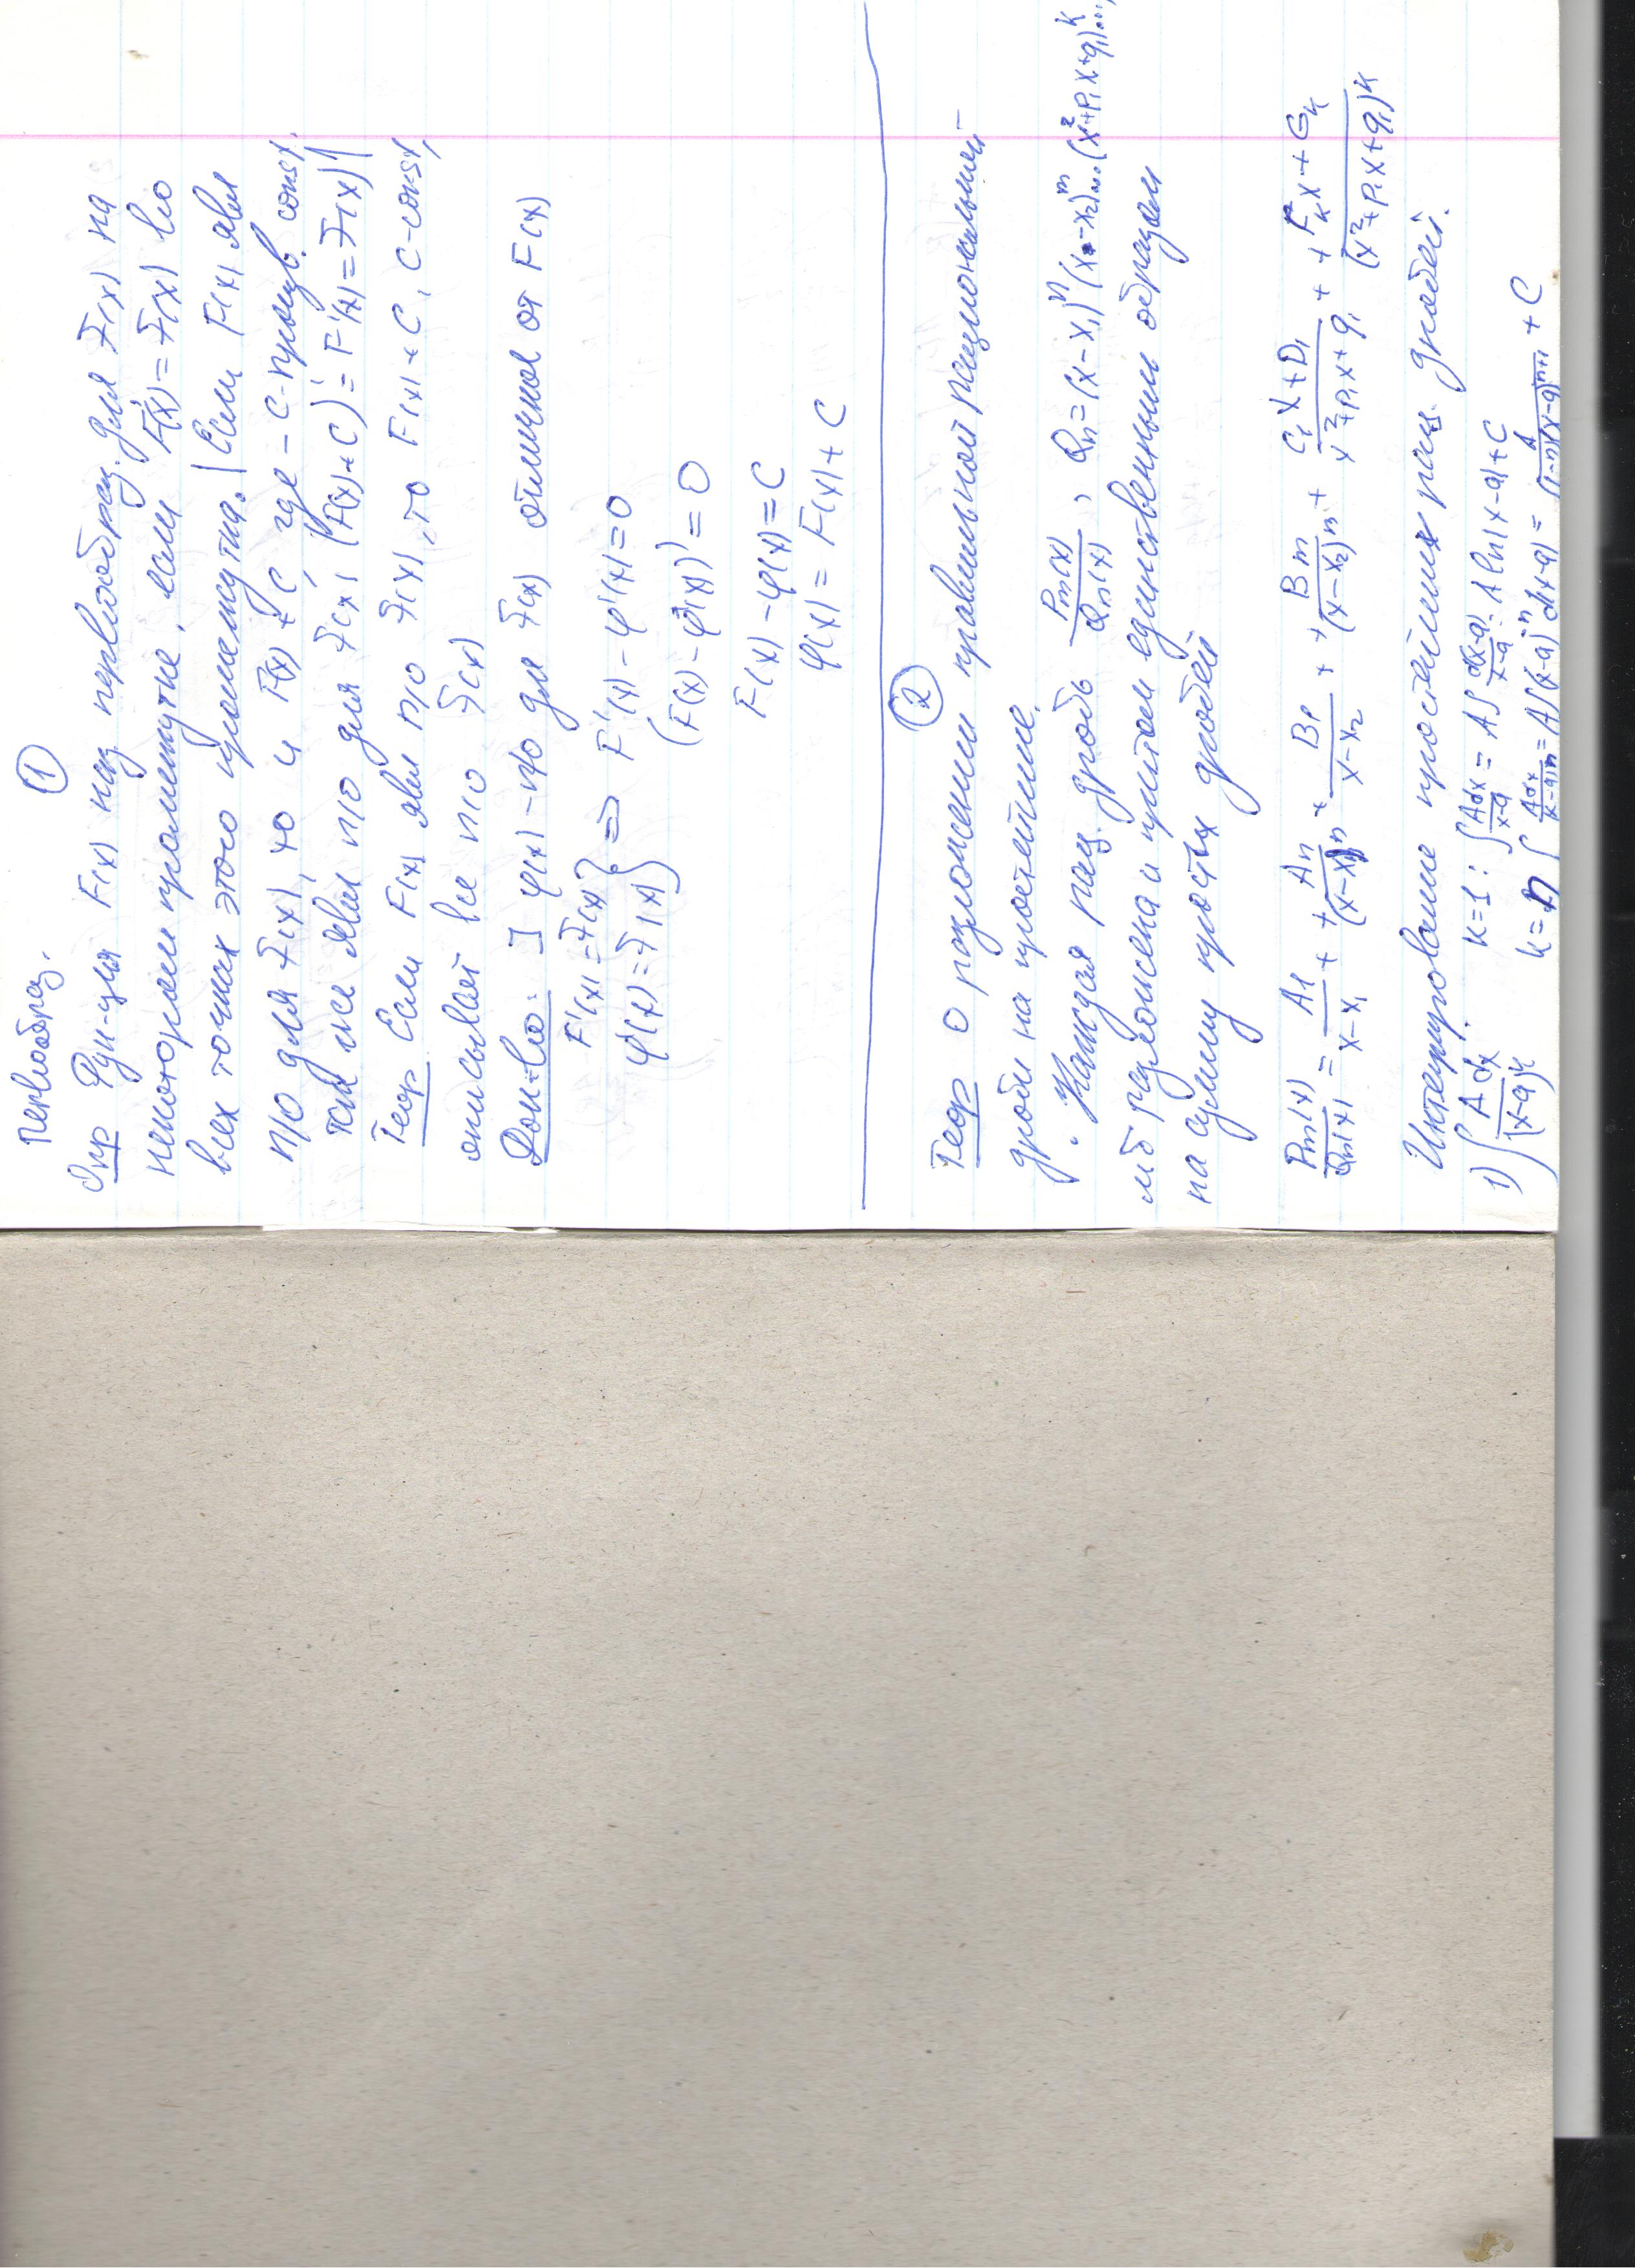 ①
Первообраз.
Опр Фун-ция F(x) наз первообраз. для f(x) на
некотором промежутке, если F'(x) = f(x) во
всех точках этого промежутка. | Если F(x) явл
п/о для f(x), то и F(x) + C, где – C – произв. const,
так же явл п/о для f(x) (F(x)+C)' = F'(x) = f(x) |
Теор Если F(x) явл п/о f(x), то F(x) + C, C-const,
описывает все п/о f(x)
Док-во: ] φ(x) – п/о для f(x) отличная от F(x)
F'(x) = f(x) } ⇒ F'(x) – φ'(x) = 0
φ'(x) = f(x) } (F(x) – φ(x))' = 0
F(x) – φ(x) = C
φ(x) = F(x) + C
②
Теор О разложении правильной рациональной
дроби на простейшие.
· Каждая рац. дробь Pm(x)/Qn(x), Qn = (x – x₁)ⁿ(x – x₂)ᵐ...(x²+p₁x+q₁)ᵏ...,
мб разложена и притом единственным образом
на сумму простых дробей
Pm(x)/Qn(x) = A1/(x – x₁) + + An/(x – x₁)ⁿ + B1/(x – x₂) + + Bm/(x – x₂)ᵐ + (C₁x + D₁)/(x² + p₁x + q₁) + + (Fₖx + Gₖ)/(x² + p₁x + q₁)ᵏ
Интегрование простейших рац. дробей.
1) ∫ A dx/(x – a)ᵏ. k = 1: ∫ Adx/(x–a) = A∫ d(x–a)/(x–a) = A ln|x – a| + C
k = n ∫ Adx/(x–a)ⁿ = A∫(x–a)⁻ⁿ d(x–a) = A/((1–n)(x–a)ⁿ⁺¹) + C